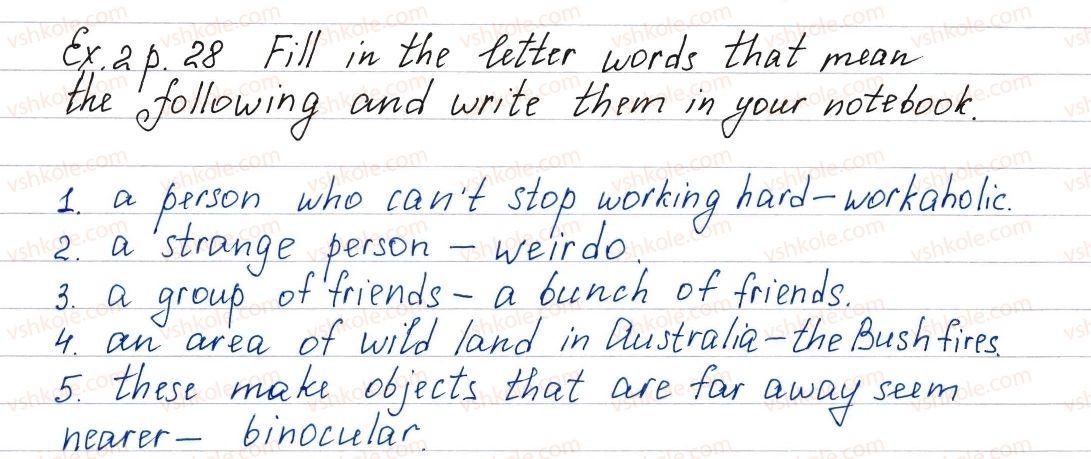 Ex. 2 p. 28 Fill in the letter words that mean
the following and write them in your notebook.
1. a person who can't stop working hard – workaholic.
2. a strange person – weirdo.
3. a group of friends – a bunch of friends.
4. an area of wild land in Australia – the Bushfires.
5. these make objects that are far away seem
nearer – binocular.